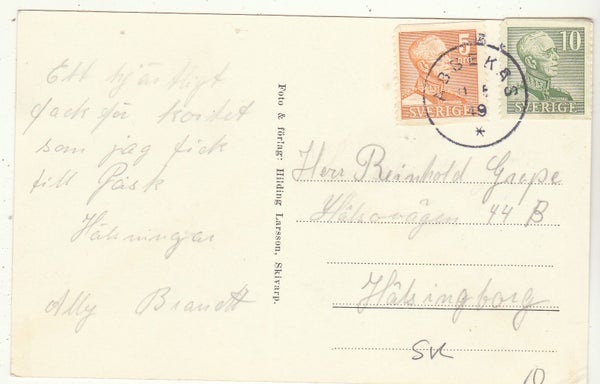 Ett hjärtligt
tack för kortet
som jag fick
till Påsk
Hälsningar
Ally Brandt
Foto & förlag: Hilding Larsson, Skivarp.
5
SVERIGE
10
SVERIGE
ABBEKÅS
49
Herr Reinhold Grepe
44 B
Hälsingborg
SK